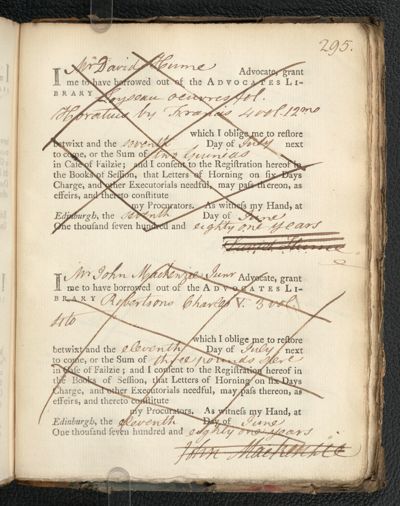 295.
I Mr David Hume Advocate, grant
me to have borrowed out of the ADVOCATES LI-
BRARY Loyseau oeuvres fol.
Horatius by Francis 4 vol. 12mo
which I oblige me to reſtore
betwixt and the seventh Day of July next
to come, or the Sum of two Guineas
in Caſe of Failzie; and I conſent to the Regiſtration hereof in
the Books of Seſſion, that Letters of Horning on ſix Days
Charge, and other Executorials needful, may paſs thereon, as
effeirs, and thereto conſtitute
my Procurators. As witneſs my Hand, at
Edinburgh, the seventh Day of June
One thouſand ſeven hundred and eighty one years
David Hume
I Mr John Mackenzie Junr Advocate, grant
me to have borrowed out of the ADVOCATES LI-
BRARY Robertsons Charles V. 3 vol
4to
which I oblige me to reſtore
betwixt and the eleventh Day of July next
to come, or the Sum of three pounds Ster
in Caſe of Failzie; and I conſent to the Regiſtration hereof in
the Books of Seſſion, that Letters of Horning on ſix Days
Charge, and other Executorials needful, may paſs thereon, as
effeirs, and thereto conſtitute
my Procurators. As witneſs my Hand, at
Edinburgh, the eleventh Day of June
One thouſand ſeven hundred and eighty one years
John Mackenzie